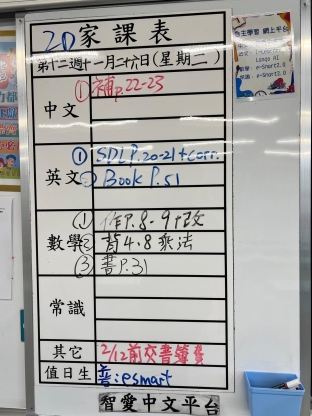 2D家課表
第十二週十一月二十六日(星期二)
中文
①補p.22-23
英文
①SDLP.20-21+corr.
②Book P.51
數學
①作P.8-9+改
②背4.8乘法
③書P.31
常識
其它
2/12前交書簿費
值日生
善:esmart
智愛中文平台
自主學習 網上平台
e-Smart2.0